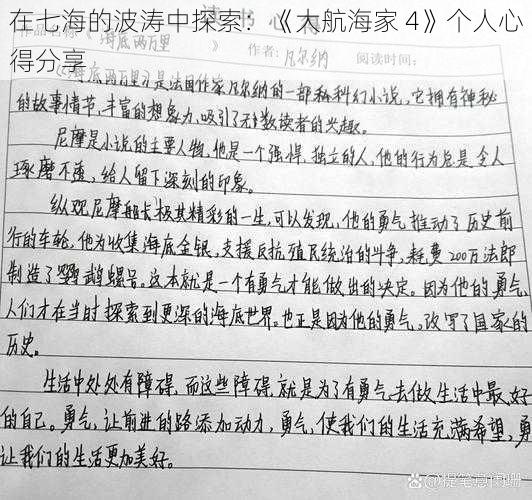 在七海的波涛中探索：《大航海家 4》个人心
得分享
读书心得
《海底两万里》 作者：凡尔纳 阅读时间：
《海底两万里》是法国作家凡尔纳的一部私科幻小说，它拥有神秘
的故事情节，丰富的想象力，吸引了无数读者的兴趣。
尼摩是小说的主要人物，他是一个强悍，独立的人，他的行为总是令人
琢磨不透，给人留下深刻的印象。
纵观尼摩船长极其精彩的一生，可以发现，他的勇气推动了历史前
行的车轮，他为收集海底金银，支援反抗殖民统治的斗争，耗费200万法郎
制造了鹦鹉螺号。这本就是一个有勇气才能做出的决定。因为他的勇气，
人们才在当时探索到更深的海底世界。也正是因为他的勇气，改写了国家的
历史。
生活中处处有障碍，而这些障碍就是为了有勇气去做生活中最好
的自己。勇气，让前进的路添加动力，勇气，使我们的生活充满希望，勇
让我们的生活更加美好。